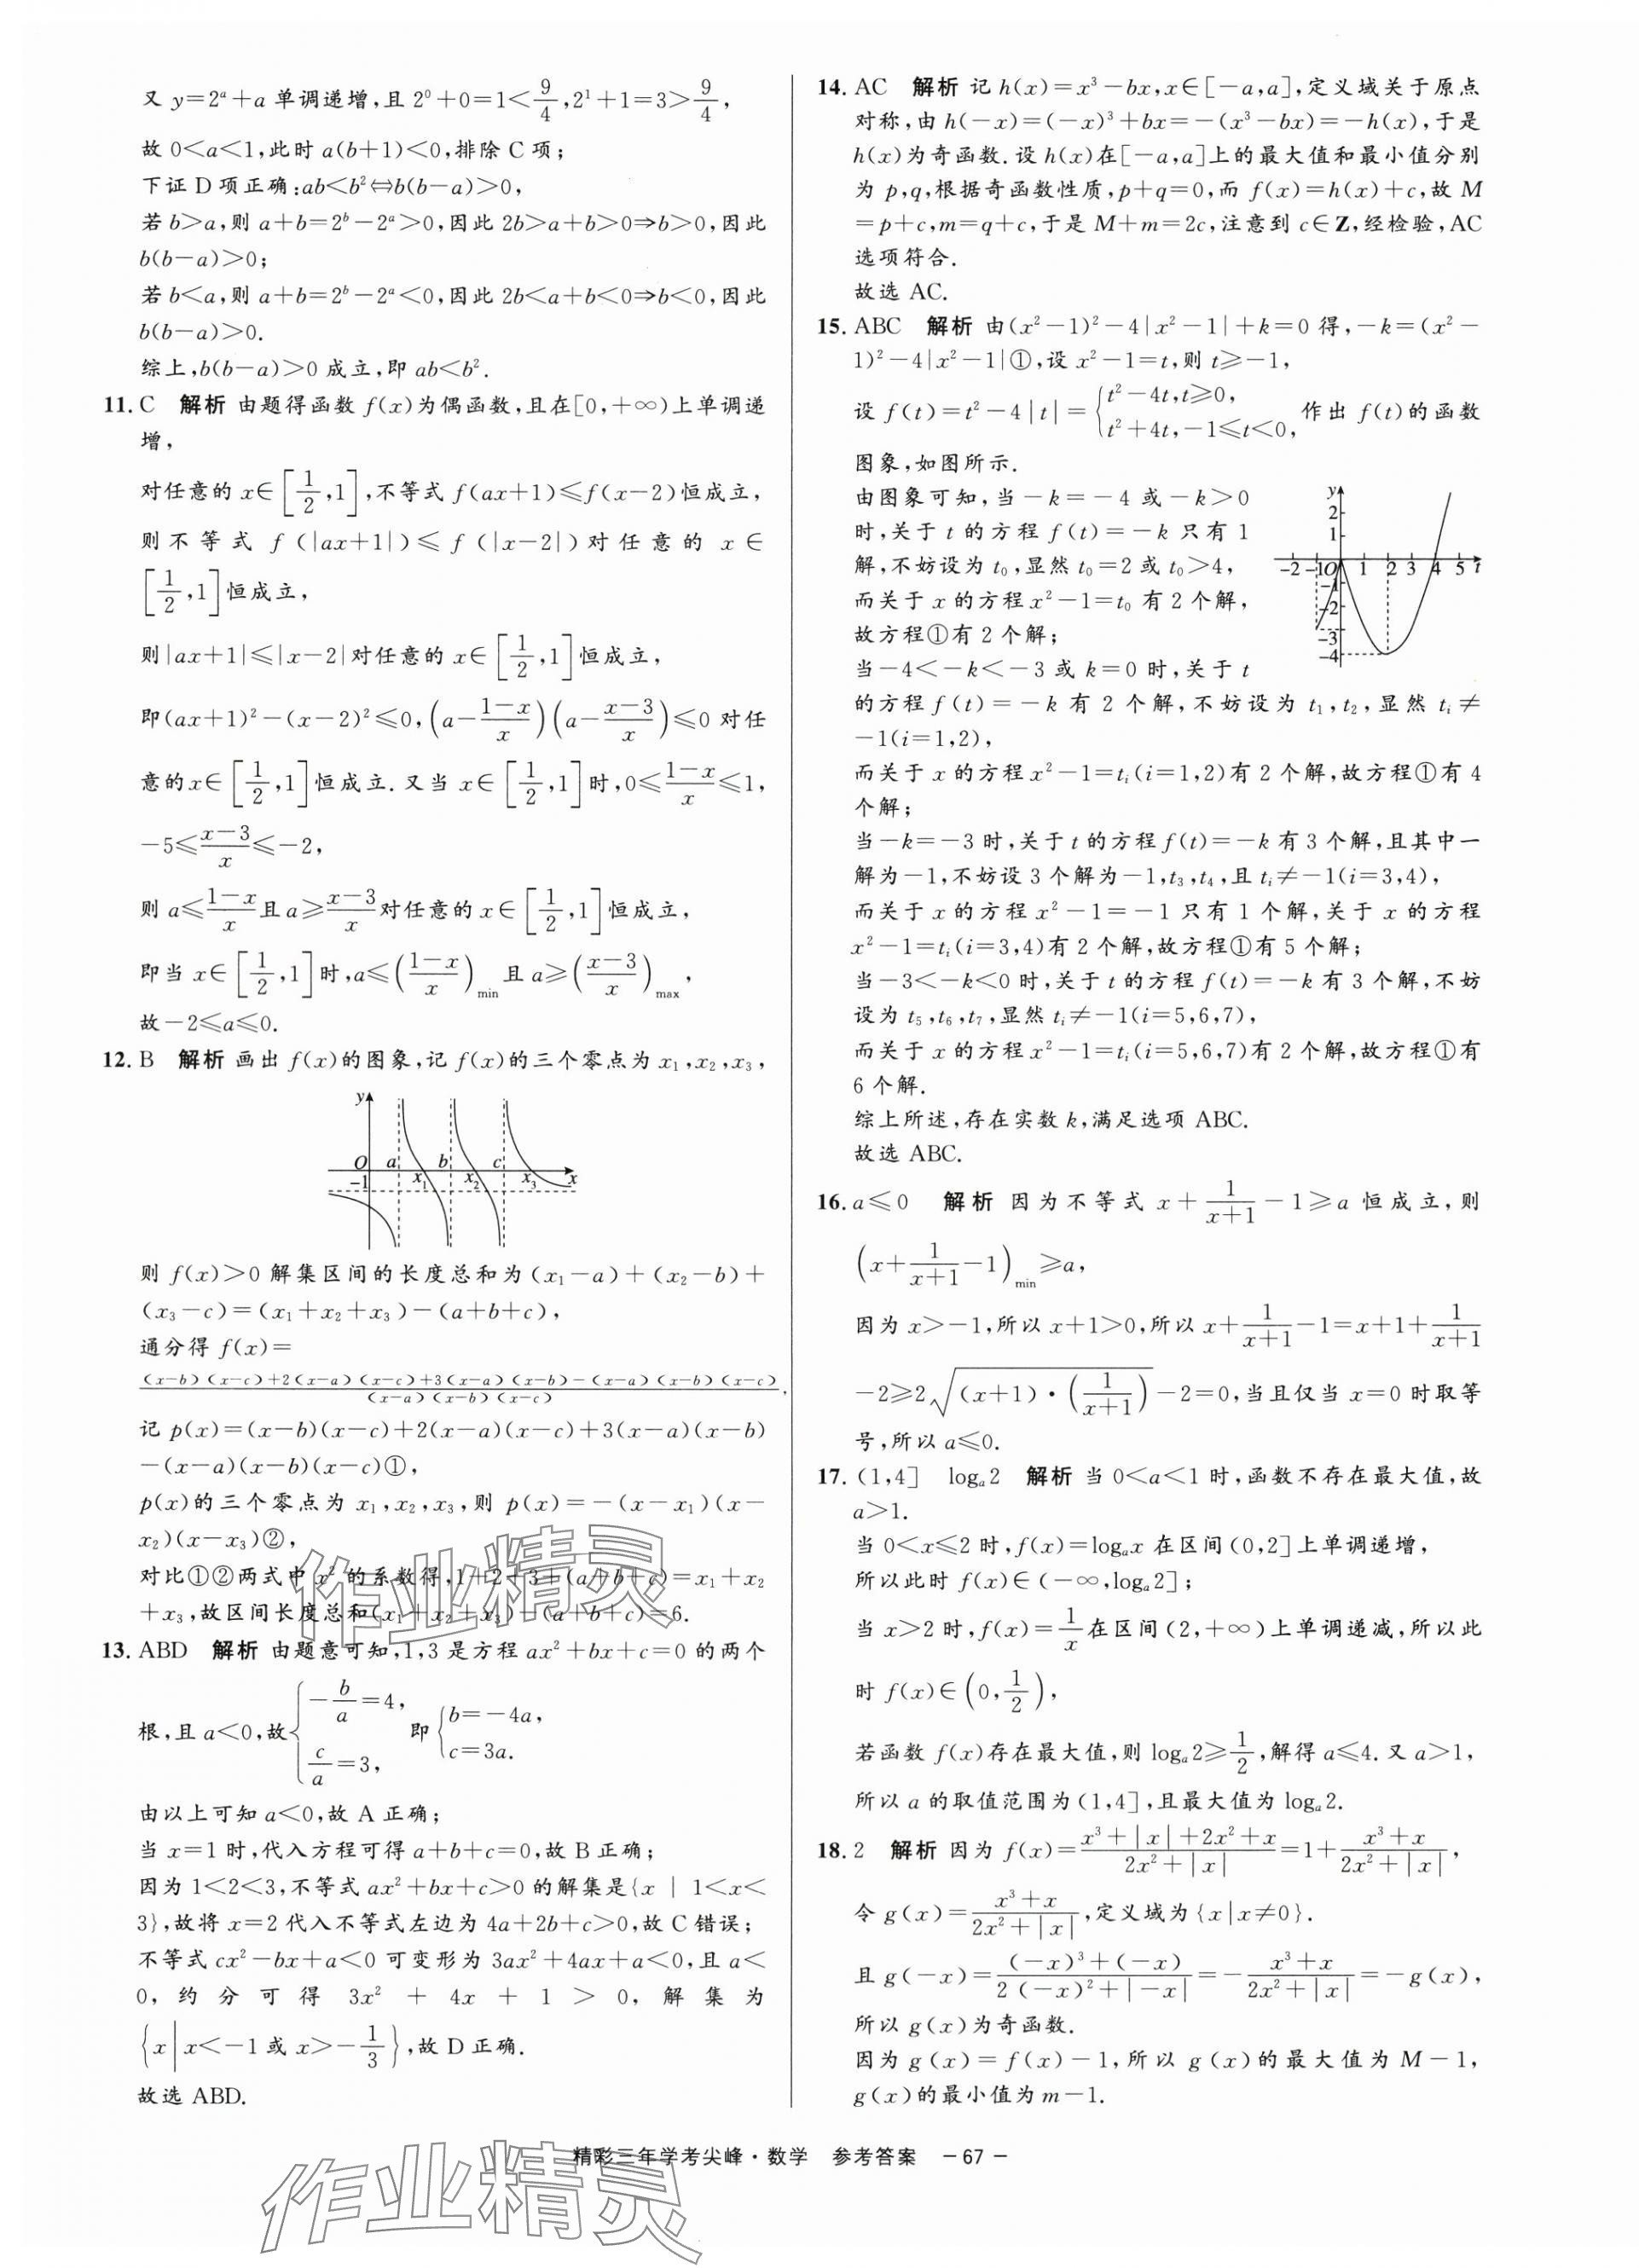 又 y=2^a+a 单调递增,且 2^0+0=1<9/4,2^1+1=3>9/4,
故 0<a<1,此时 a(b+1)<0,排除 C 项;
下证 D 项正确:ab<b²⇔b(b-a)>0,
若 b>a,则 a+b=2^b-2^a>0,因此 2b>a+b>0⇒b>0,因此
b(b-a)>0;
若 b<a,则 a+b=2^b-2^a<0,因此 2b<a+b<0⇒b<0,因此
b(b-a)>0.
综上,b(b-a)>0 成立,即 ab<b².
11. C 解析 由题得函数 f(x)为偶函数,且在[0,+∞)上单调递
增,
对任意的 x∈[1/2,1],不等式 f(ax+1)≤f(x-2)恒成立,
则不等式 f(|ax+1|)≤f(|x-2|)对任意的 x∈
[1/2,1]恒成立,
则|ax+1|≤|x-2|对任意的 x∈[1/2,1]恒成立,
即(ax+1)²-(x-2)²≤0,(a-(1-x)/x)(a-(x-3)/x)≤0 对任
意的x∈[1/2,1]恒成立.又当 x∈[1/2,1]时,0≤(1-x)/x≤1,
-5≤(x-3)/x≤-2,
则 a≤(1-x)/x且 a≥(x-3)/x对任意的 x∈[1/2,1]恒成立,
即当 x∈[1/2,1]时,a≤((1-x)/x)min 且 a≥((x-3)/x)max,
故-2≤a≤0.
12. B 解析 画出 f(x)的图象,记 f(x)的三个零点为 x₁,x₂,x₃,
y
O a b c
-1 x₁ x₂ x₃ x
则 f(x)>0 解集区间的长度总和为(x₁-a)+(x₂-b)+
(x₃-c)=(x₁+x₂+x₃)-(a+b+c),
通分得 f(x)=
((x-b)(x-c)+2(x-a)(x-c)+3(x-a)(x-b)-(x-a)(x-b)(x-c))/((x-a)(x-b)(x-c)),
记 p(x)=(x-b)(x-c)+2(x-a)(x-c)+3(x-a)(x-b)
-(x-a)(x-b)(x-c)①,
p(x)的三个零点为 x₁,x₂,x₃,则 p(x)=-(x-x₁)(x-
x₂)(x-x₃)②,
对比①②两式中 x² 的系数得,1+2+3+(a+b+c)=x₁+x₂
+x₃,故区间长度总和(x₁+x₂+x₃)-(a+b+c)=6.
13. ABD 解析 由题意可知,1,3 是方程 ax²+bx+c=0 的两个
根,且 a<0,故{-b/a=4, c/a=3, 即{b=-4a, c=3a.
由以上可知 a<0,故 A 正确;
当 x=1 时,代入方程可得 a+b+c=0,故 B 正确;
因为 1<2<3,不等式 ax²+bx+c>0 的解集是{x | 1<x<
3},故将 x=2 代入不等式左边为 4a+2b+c>0,故 C 错误;
不等式 cx²-bx+a<0 可变形为 3ax²+4ax+a<0,且 a<
0,约分可得 3x² + 4x + 1 > 0,解集为
{x|x<-1 或 x>-1/3},故 D 正确.
故选 ABD.
14. AC 解析 记 h(x)=x³-bx,x∈[-a,a],定义域关于原点
对称,由 h(-x)=(-x)³+bx=-(x³-bx)=-h(x),于是
h(x)为奇函数.设 h(x)在[-a,a]上的最大值和最小值分别
为 p,q,根据奇函数性质,p+q=0,而 f(x)=h(x)+c,故 M
=p+c,m=q+c,于是 M+m=2c,注意到 c∈Z,经检验,AC
选项符合.
故选 AC.
15. ABC 解析 由(x²-1)²-4|x²-1|+k=0 得,-k=(x²-
1)²-4|x²-1|①,设 x²-1=t,则 t≥-1,
设 f(t)=t²-4|t|={t²-4t,t≥0, t²+4t,-1≤t<0, 作出 f(t)的函数
图象,如图所示.
由图象可知,当-k=-4 或-k>0
时,关于 t 的方程 f(t)=-k 只有 1
解,不妨设为 t₀,显然 t₀=2 或 t₀>4,
而关于 x 的方程 x²-1=t₀ 有 2 个解,
故方程①有 2 个解;
当-4<-k<-3 或 k=0 时,关于 t
y
2
1
-2 -1 O 1 2 3 4 5 t
-1
-2
-3
-4
的方程 f(t)=-k 有 2 个解,不妨设为 t₁,t₂,显然 tᵢ≠
-1(i=1,2),
而关于 x 的方程 x²-1=tᵢ(i=1,2)有 2 个解,故方程①有 4
个解;
当-k=-3 时,关于 t 的方程 f(t)=-k 有 3 个解,且其中一
解为-1,不妨设 3 个解为-1,t₃,t₄,且 tᵢ≠-1(i=3,4),
而关于 x 的方程 x²-1=-1 只有 1 个解,关于 x 的方程
x²-1=tᵢ(i=3,4)有 2 个解,故方程①有 5 个解;
当-3<-k<0 时,关于 t 的方程 f(t)=-k 有 3 个解,不妨
设为 t₅,t₆,t₇,显然 tᵢ≠-1(i=5,6,7),
而关于 x 的方程 x²-1=tᵢ(i=5,6,7)有 2 个解,故方程①有
6 个解.
综上所述,存在实数 k,满足选项 ABC.
故选 ABC.
16. a≤0 解析 因为不等式 x+1/(x+1)-1≥a 恒成立,则
(x+1/(x+1)-1)min≥a,
因为 x>-1,所以 x+1>0,所以 x+1/(x+1)-1=x+1+1/(x+1)
-2≥2√((x+1)·(1/(x+1)))-2=0,当且仅当 x=0 时取等
号,所以 a≤0.
17. (1,4] logₐ2 解析 当 0<a<1 时,函数不存在最大值,故
a>1.
当 0<x≤2 时,f(x)=logₐx 在区间(0,2]上单调递增,
所以此时 f(x)∈(-∞,logₐ2];
当 x>2 时,f(x)=1/x在区间(2,+∞)上单调递减,所以此
时 f(x)∈(0,1/2),
若函数 f(x)存在最大值,则 logₐ2≥1/2,解得 a≤4.又 a>1,
所以 a 的取值范围为(1,4],且最大值为 logₐ2.
18. 2 解析 因为 f(x)=(x³+|x|+2x²+x)/(2x²+|x|)=1+(x³+x)/(2x²+|x|),
令 g(x)=(x³+x)/(2x²+|x|),定义域为{x|x≠0}.
且 g(-x)=((-x)³+(-x))/(2(-x)²+|-x|)=-(x³+x)/(2x²+|x|)=-g(x),
所以 g(x)为奇函数.
因为 g(x)=f(x)-1,所以 g(x)的最大值为 M-1,
g(x)的最小值为 m-1.
精彩三年学考尖峰·数学 参考答案 -67-
作业精灵
作业精灵